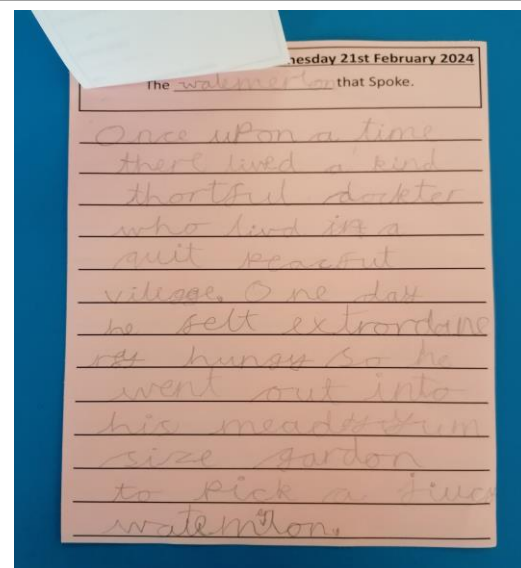 nesday 21st February 2024
The watemerlon that Spoke.
Once upon a time
there lived a kind
thortful dockter
who livd in a
quit peacfut
vilege. One day
he felt extrordane
hungy so he
went out into
his
size gardon
to pick a jiuce
watemlon.